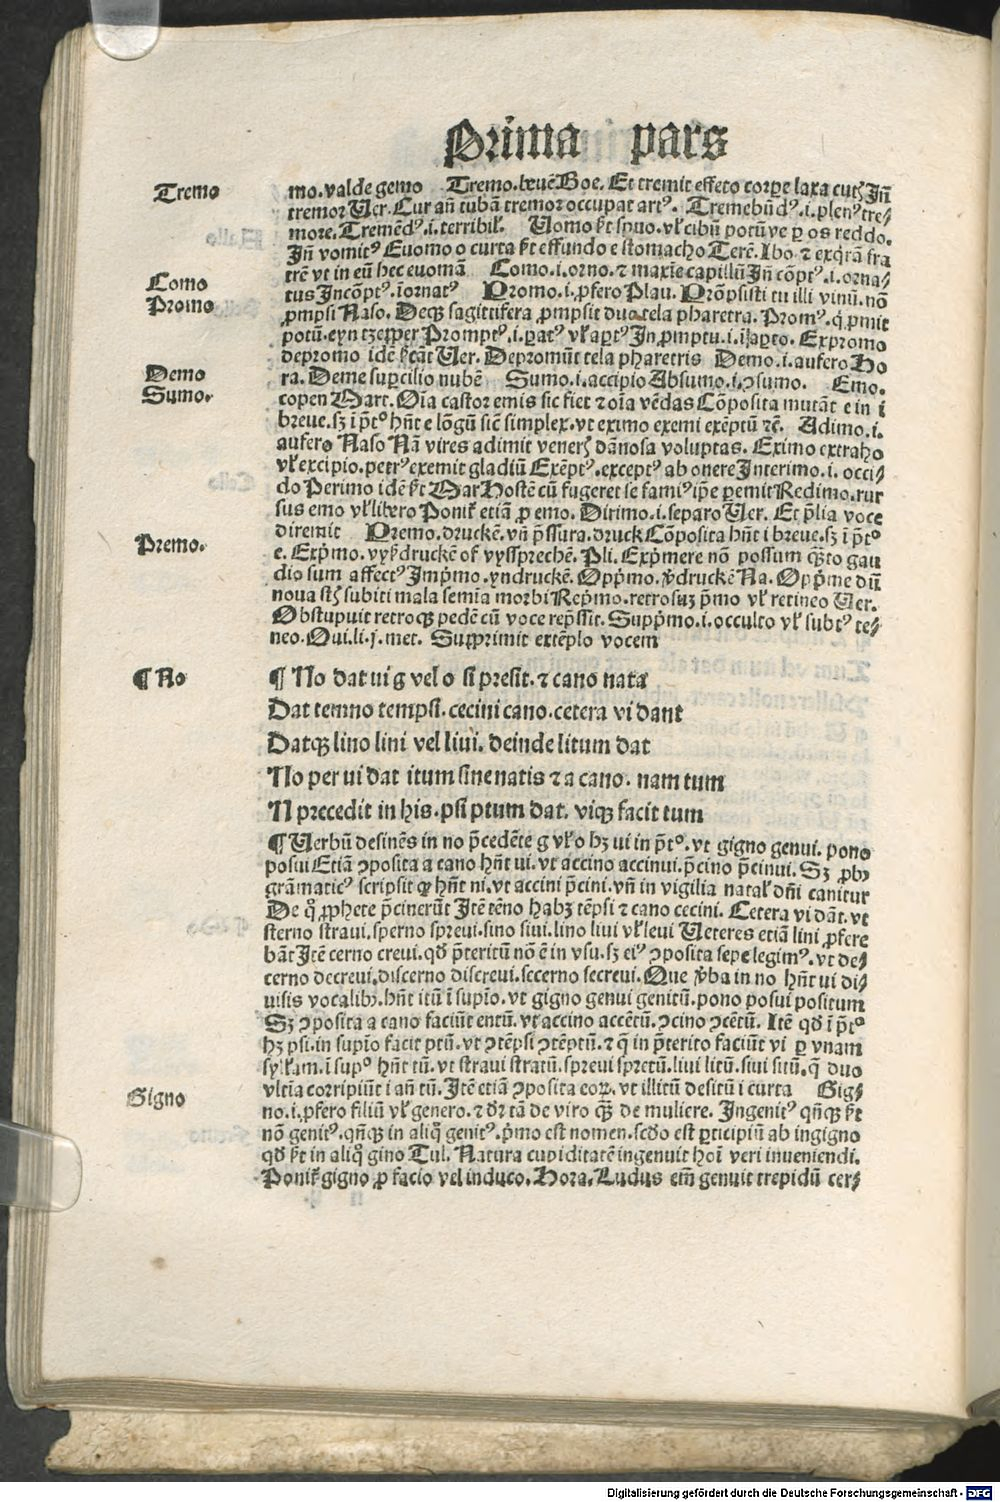 Prima pars
Tremo
mo.valde gemo Tremo.bevē Boe. Et tremit effeto corpe laxa cutꝭ Jn̄
tremor Uer. Cur an̄ tubā tremor occupat artꝰ. Tremebūdꝰ.i.plenꝰ tre⸗
more. Tremēdꝰ.i.terribil. Uomo ē spuo.vl cibū potūve ꝑ os reddo.
Jn̄ vomitꝰ Euomo o curta ē effundo e stomacho Terē. Ibo ⁊ exq̄rā fra
trē vt in eū hec euomā Como.i.orno.⁊ maxīe capillū Jn̄ cōptꝰ.i.orna⸗
Como
tus Jncōptꝰ.īornatꝰ Promo.i.ꝓfero Plau. Prōpsisti tu illi vinū. nō
Promo
ꝓmpsi Naso. Deqꝫ sagittifera ꝓmpsit duo tela pharetra. Promꝰ.q̇ ꝓmit
potū. Promptꝰ.i.ꝑatꝰ vl aptꝰ Jn ꝓmptu.i.ī apto. Expromo
depromo idē ēcāt Uer. Depromūt tela pharetris Demo.i.aufero Ho
Demo
ra. Deme supcilio nubē Sumo.i.accipio Absumo.i.ꝯsumo. Emo.
Sumo.
copen Mart. Oīa castor emis sic fiet ⁊ oīa vēdas Cōposita mutāt e in i
breue.sꝫ ī p̄tꝰ hn̄t e lōgū sic̄ simplex.vt eximo exemi exēptū ⁊c̄. Adimo.i.
aufero Naso Nā vires adimit venerꝭ dānosa voluptas. Eximo extraho
vl excipio.petrꝰ exemit gladiū Exēptꝰ.exceptꝰ ab onere Jnterimo.i.occi⸗
do Perimo idē ē Mar Hostē cū fugeret se famiꝰ ip̄e ꝑemit Redimo.rur
sus emo vl libero Ponit etiā ꝓ emo. Dirimo.i.separo Uer. Et p̄lia voce
diremit Premo.druckē.vn̄ p̄ssura.druck Cōposita hn̄t i breue.sꝫ ī p̄tꝰ
Premo.
e. Exp̄mo.vyſzdruckē of vyssprechē. Pli. Exp̄mere nō possum q̄ꝫto gau
dio sum affectꝰ Jmp̄mo.yndruckē. Opp̄mo.v̄druckē Na. Opp̄me dū
noua stꝭ subiti mala semīa morbi Rep̄mo.retrosuꝫ p̄mo vl retineo Uer.
Obstupuit retroqꝫ pedē cū voce rep̄ssit. Supp̄mo.i.occulto vl subtꝰ te⸗
neo. Oui.li.j.met. Supprimit extēplo vocem
¶ No
¶ No dat ui g vel o si presit.⁊ cano nata
Dat temno tempsi.cecini cano.cetera vi dant
Datqꝫ lino lini vel liui.deinde litum dat
No per ui dat itum sine natis ⁊ a cano.nam tum
N precedit in his.psi ptum dat.viqꝫ facit tum
¶ Uerbū desinēs in no p̄cedēte g vl o hꝫ ui in p̄tꝰ.vt gigno genui.pono
posui Etiā ꝯposita a cano hn̄t ui.vt accino accinui.p̄cino p̄cinui. Sꝫ
grāmaticꝰ scripsit ꝙ hn̄t ni.vt accini p̄cini.vn̄ in vigilia natal dn̄i canitur
De q̊ ꝓphete p̄cinerūt Jtē tēno habꝫ tēpsi ⁊ cano cecini. Cetera vi dāt.vt
sterno straui.sperno spreui.sino siui.lino liui vl leui Ueteres etiā lini ꝓfere
bāt Jtē cerno creui.qd̄ p̄teritū nō ē in vsu.sꝫ eiꝰ ꝯposita sepe legimꝰ.vt de⸗
cerno decreui.discerno discreui.secerno secreui. Que v̄ba in no hn̄t ui di⸗
uisis vocalibꝫ.hn̄t itū ī supīo.vt gigno genui genitū.pono posui positum
Sꝫ ꝯposita a cano faciūt entū.vt accino accētū.ꝯcino ꝯcētū. Itē qd̄ ī p̄tꝰ
hꝫ psi.in supīo facit ptū.vt ꝯtēpsi ꝯtēptū.⁊ q̄ in p̄terito faciūt vi ꝑ vnam
syllam.ī supꝰ hn̄t tū.vt straui stratū.spreui spretū.liui litū.siui sitū.q̄ duo
vltīa corripiūt i an̄ tū. Jtē etiā ꝯposita eoꝝ.vt illitū desitū i curta Gig⸗
Gigno
no.i.ꝓfero filiū vl genero.⁊ dr̄ tā de viro q̄ꝫ de muliere. Jngenitꝰ qn̄qꝫ ē
nō genitꝰ.qn̄qꝫ in aliq̊ genitꝰ.p̄mo est nomen.scdo est ꝑticipiū ab ingigno
qd̄ ē in aliq̊ gino Tul. Natura cupiditatē ingenuit hoī veri inueniendi.
Ponit gigno ꝓ facio vel induco. Hora. Ludus em̄ genuit trepidū cer⸗
Digitalisierung gefördert durch die Deutsche Forschungsgemeinschaft - DFG